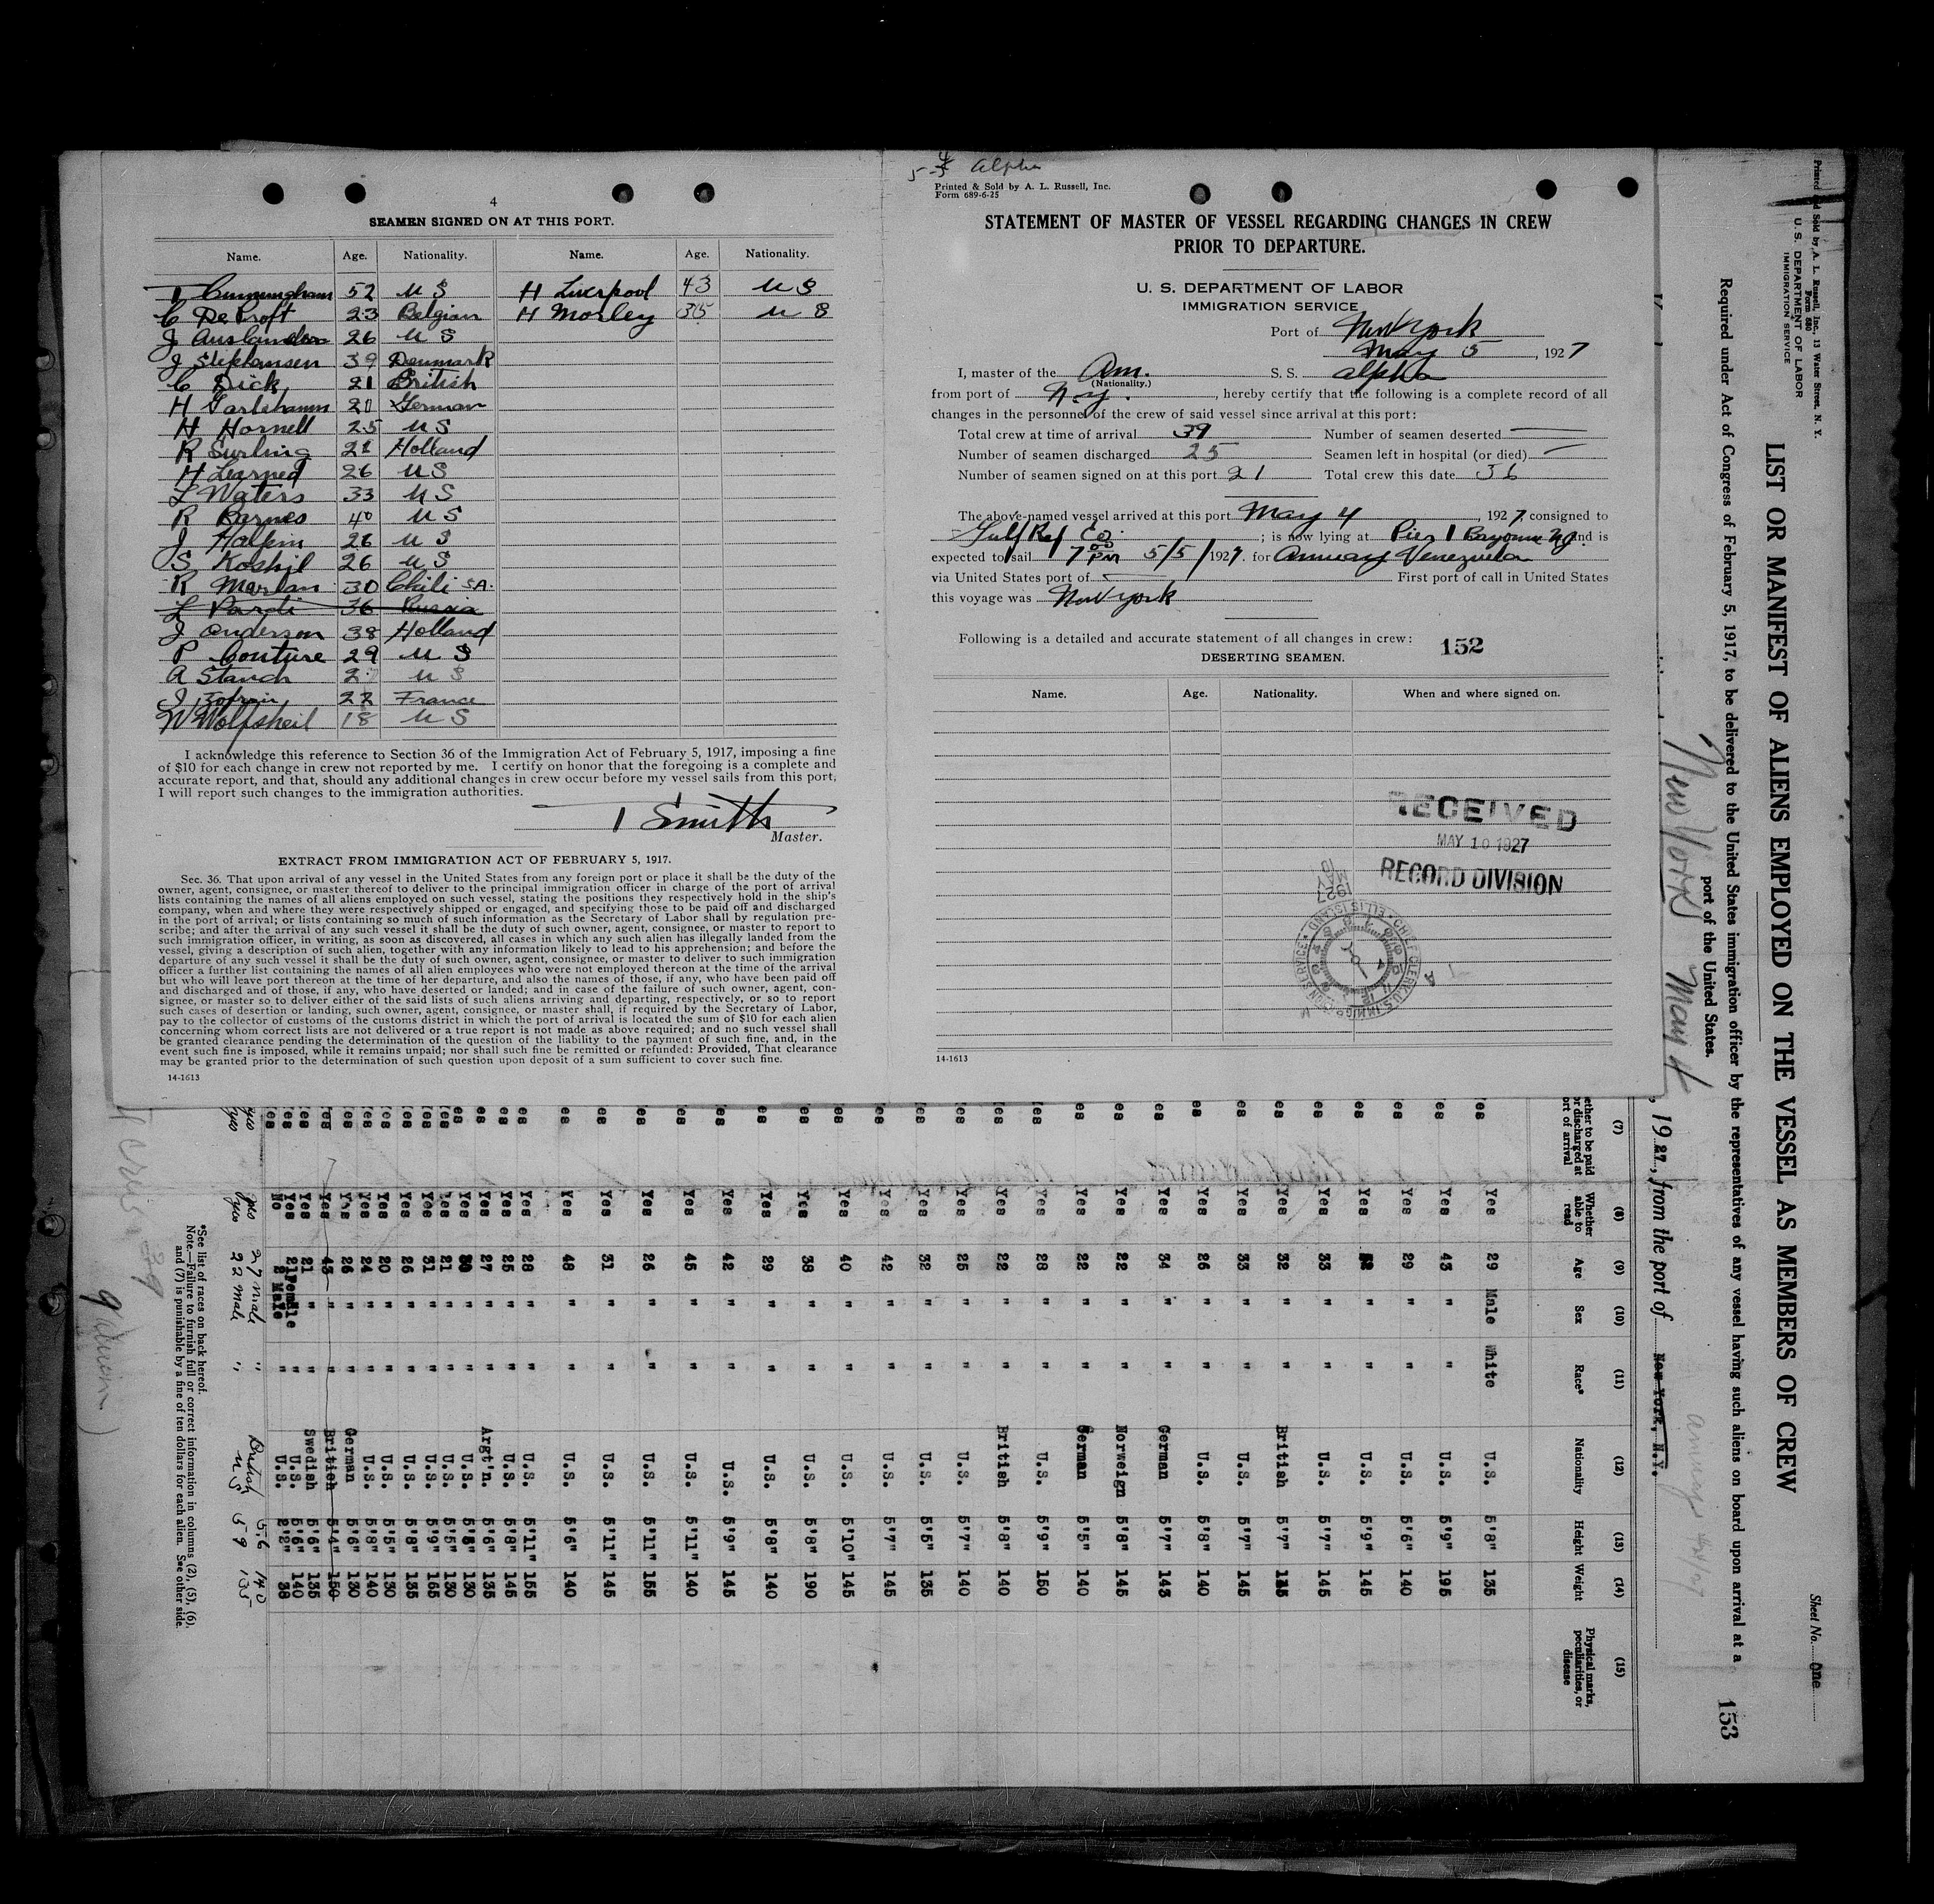 4
SEAMEN SIGNED ON AT THIS PORT.
Name. Age. Nationality. Name. Age. Nationality.
Cunningham 52 U S H Liverpool 43 U S
C De Proft 23 Belgian H Morley 35 U S
J Auslander 26 U S
J Stephansen 39 Denmark
C Dick 21 British
H 20 German
H Hornell 25 U S
R Surling 21 Holland
H Learned 26 U S
L Waters 33 U S
R Barnes 40 U S
J Halpin 26 U S
S Koshil 26 U S
R Merlan 30 Chili S.A.
L Pardi 36 Russia
J Anderson 38 Holland
P Couture 29 U S
A Stauch U S
J 22 France
W Wolfsheil 18 U S
I acknowledge this reference to Section 36 of the Immigration Act of February 5, 1917, imposing a fine
of $10 for each change in crew not reported by me. I certify on honor that the foregoing is a complete and
accurate report, and that, should any additional changes in crew occur before my vessel sails from this port,
I will report such changes to the immigration authorities.
T Smith
Master.
EXTRACT FROM IMMIGRATION ACT OF FEBRUARY 5, 1917.
Sec. 36. That upon arrival of any vessel in the United States from any foreign port or place it shall be the duty of the
owner, agent, consignee, or master thereof to deliver to the principal immigration officer in charge of the port of arrival
lists containing the names of all aliens employed on such vessel, stating the positions they respectively hold in the ship's
company, when and where they were respectively shipped or engaged, and specifying those to be paid off and discharged
in the port of arrival; or lists containing so much of such information as the Secretary of Labor shall by regulation pre-
scribe; and after the arrival of any such vessel it shall be the duty of such owner, agent, consignee, or master to report to
such immigration officer, in writing, as soon as discovered, all cases in which any such alien has illegally landed from the
vessel, giving a description of such alien, together with any information likely to lead to his apprehension; and before the
departure of any such vessel it shall be the duty of such owner, agent, consignee, or master to deliver to such immigration
officer a further list containing the names of all alien employees who were not employed thereon at the time of the arrival
but who will leave port thereon at the time of her departure, and also the names of those, if any, who have been paid off
and discharged and of those, if any, who have deserted or landed; and in case of the failure of such owner, agent, con-
signee, or master so to deliver either of the said lists of such aliens arriving and departing, respectively, or so to report
such cases of desertion or landing, such owner, agent, consignee, or master shall, if required by the Secretary of Labor,
pay to the collector of customs of the customs district in which the port of arrival is located the sum of $10 for each alien
concerning whom correct lists are not delivered or a true report is not made as above required; and no such vessel shall
be granted clearance pending the determination of the question of the liability to the payment of such fine, and, in the
event such fine is imposed, while it remains unpaid; nor shall such fine be remitted or refunded: Provided, That clearance
may be granted prior to the determination of such question upon deposit of a sum sufficient to cover such fine.
14-1613
Alpha
Printed & Sold by A. L. Russell, Inc.
Form 689-6-25
STATEMENT OF MASTER OF VESSEL REGARDING CHANGES IN CREW
PRIOR TO DEPARTURE.
U. S. DEPARTMENT OF LABOR
IMMIGRATION SERVICE
Port of New York
May 5, 1927
I, master of the Am. S. S. Alpha
(Nationality.)
from port of N.Y., hereby certify that the following is a complete record of all
changes in the personnel of the crew of said vessel since arrival at this port:
Total crew at time of arrival 39 Number of seamen deserted
Number of seamen discharged 25 Seamen left in hospital (or died)
Number of seamen signed on at this port 21 Total crew this date 36
The above-named vessel arrived at this port May 4, 1927, consigned to
Gulf Ref Co.; is now lying at Pier 1 Bayonne NJ. and is
expected to sail 7 00 PM 5/5/1927. for Amuay Venezuela
via United States port of First port of call in United States
this voyage was New York
Following is a detailed and accurate statement of all changes in crew: 152
DESERTING SEAMEN.
Name. Age. Nationality. When and where signed on.
RECEIVED
MAY 10 1927
RECORD DIVISION
MAY 10 1927
14-1613
Printed and Sold by A. L. Russell, Inc., 13 Water Street, N. Y.
Form 680
U. S. DEPARTMENT OF LABOR
IMMIGRATION SERVICE
Sheet No. One
LIST OR MANIFEST OF ALIENS EMPLOYED ON THE VESSEL AS MEMBERS OF CREW
Required under Act of Congress of February 5, 1917, to be delivered to the United States immigration officer by the representatives of any vessel having such aliens on board upon arrival at a
port of the United States.
153
New York May 4, 1927, from the port of New York, N.Y.
(7) (8) (9) (10) (11) (12) (13) (14) (15)
Whether able to read Age Sex Race* Nationality Height Weight Physical marks, peculiarities, or disease
Yes 29 Male White U.S. 5'8" 135
Yes 43 " " U.S. 5'9" 195
Yes 29 " " U.S. 5'6" 140
Yes " " U.S. 5'9" 145
Yes 33 " " U.S. 5'7" 145
Yes 32 " " British 5'7" 135
Yes 33 " " U.S. 5'7" 145
Yes 26 " " U.S. 5'8" 140
Yes 34 " " German 5'7" 143
Yes 22 " " Norweign 5'8" 145
Yes 22 " " German 5'5" 140
Yes 28 " " U.S. 5'9" 150
Yes 22 " " British 5'8" 140
Yes 25 " " U.S. 5'7" 140
Yes 32 " " U.S. 5'6" 135
Yes 42 " " U.S. 5'7" 145
Yes 40 " " U.S. 5'10" 145
Yes 38 " " U.S. 5'8" 190
Yes 29 " " U.S. 5'8" 140
Yes 42 " " U.S. 5'9" 145
Yes 45 " " U.S. 5'11" 140
Yes 26 " " U.S. 5'11" 155
Yes 31 " " U.S. 5'11" 145
Yes 48 " " U.S. 5'6" 140
Yes 28 " " U.S. 5'11" 155
Yes 25 " " U.S. 5'8" 145
Yes 27 " " Argt'n. 5'6" 135
Yes 30 " " U.S. 5'8" 130
Yes 21 " " U.S. 5'5" 130
Yes 31 " " U.S. 5'9" 155
Yes 26 " " U.S. 5'8" 135
Yes 20 " " U.S. 5'5" 130
Yes 24 " " U.S. 5'8" 140
Yes 26 " " German 5'6" 130
Yes 43 " " British 5'4" 150
Yes 21 " " Swedish 5'6" 135
Yes 21 Female " U.S. 5'6" 140
No 2 Male " U.S. 2'2" 38
yes 27 male " British 5.6 140
yes 22 male " U S 5 9 135
*See list of races on back hereof.
Note.—Failure to furnish full or correct information in columns (2), (5), (6),
and (7) is punishable by a fine of ten dollars for each alien. See other side.